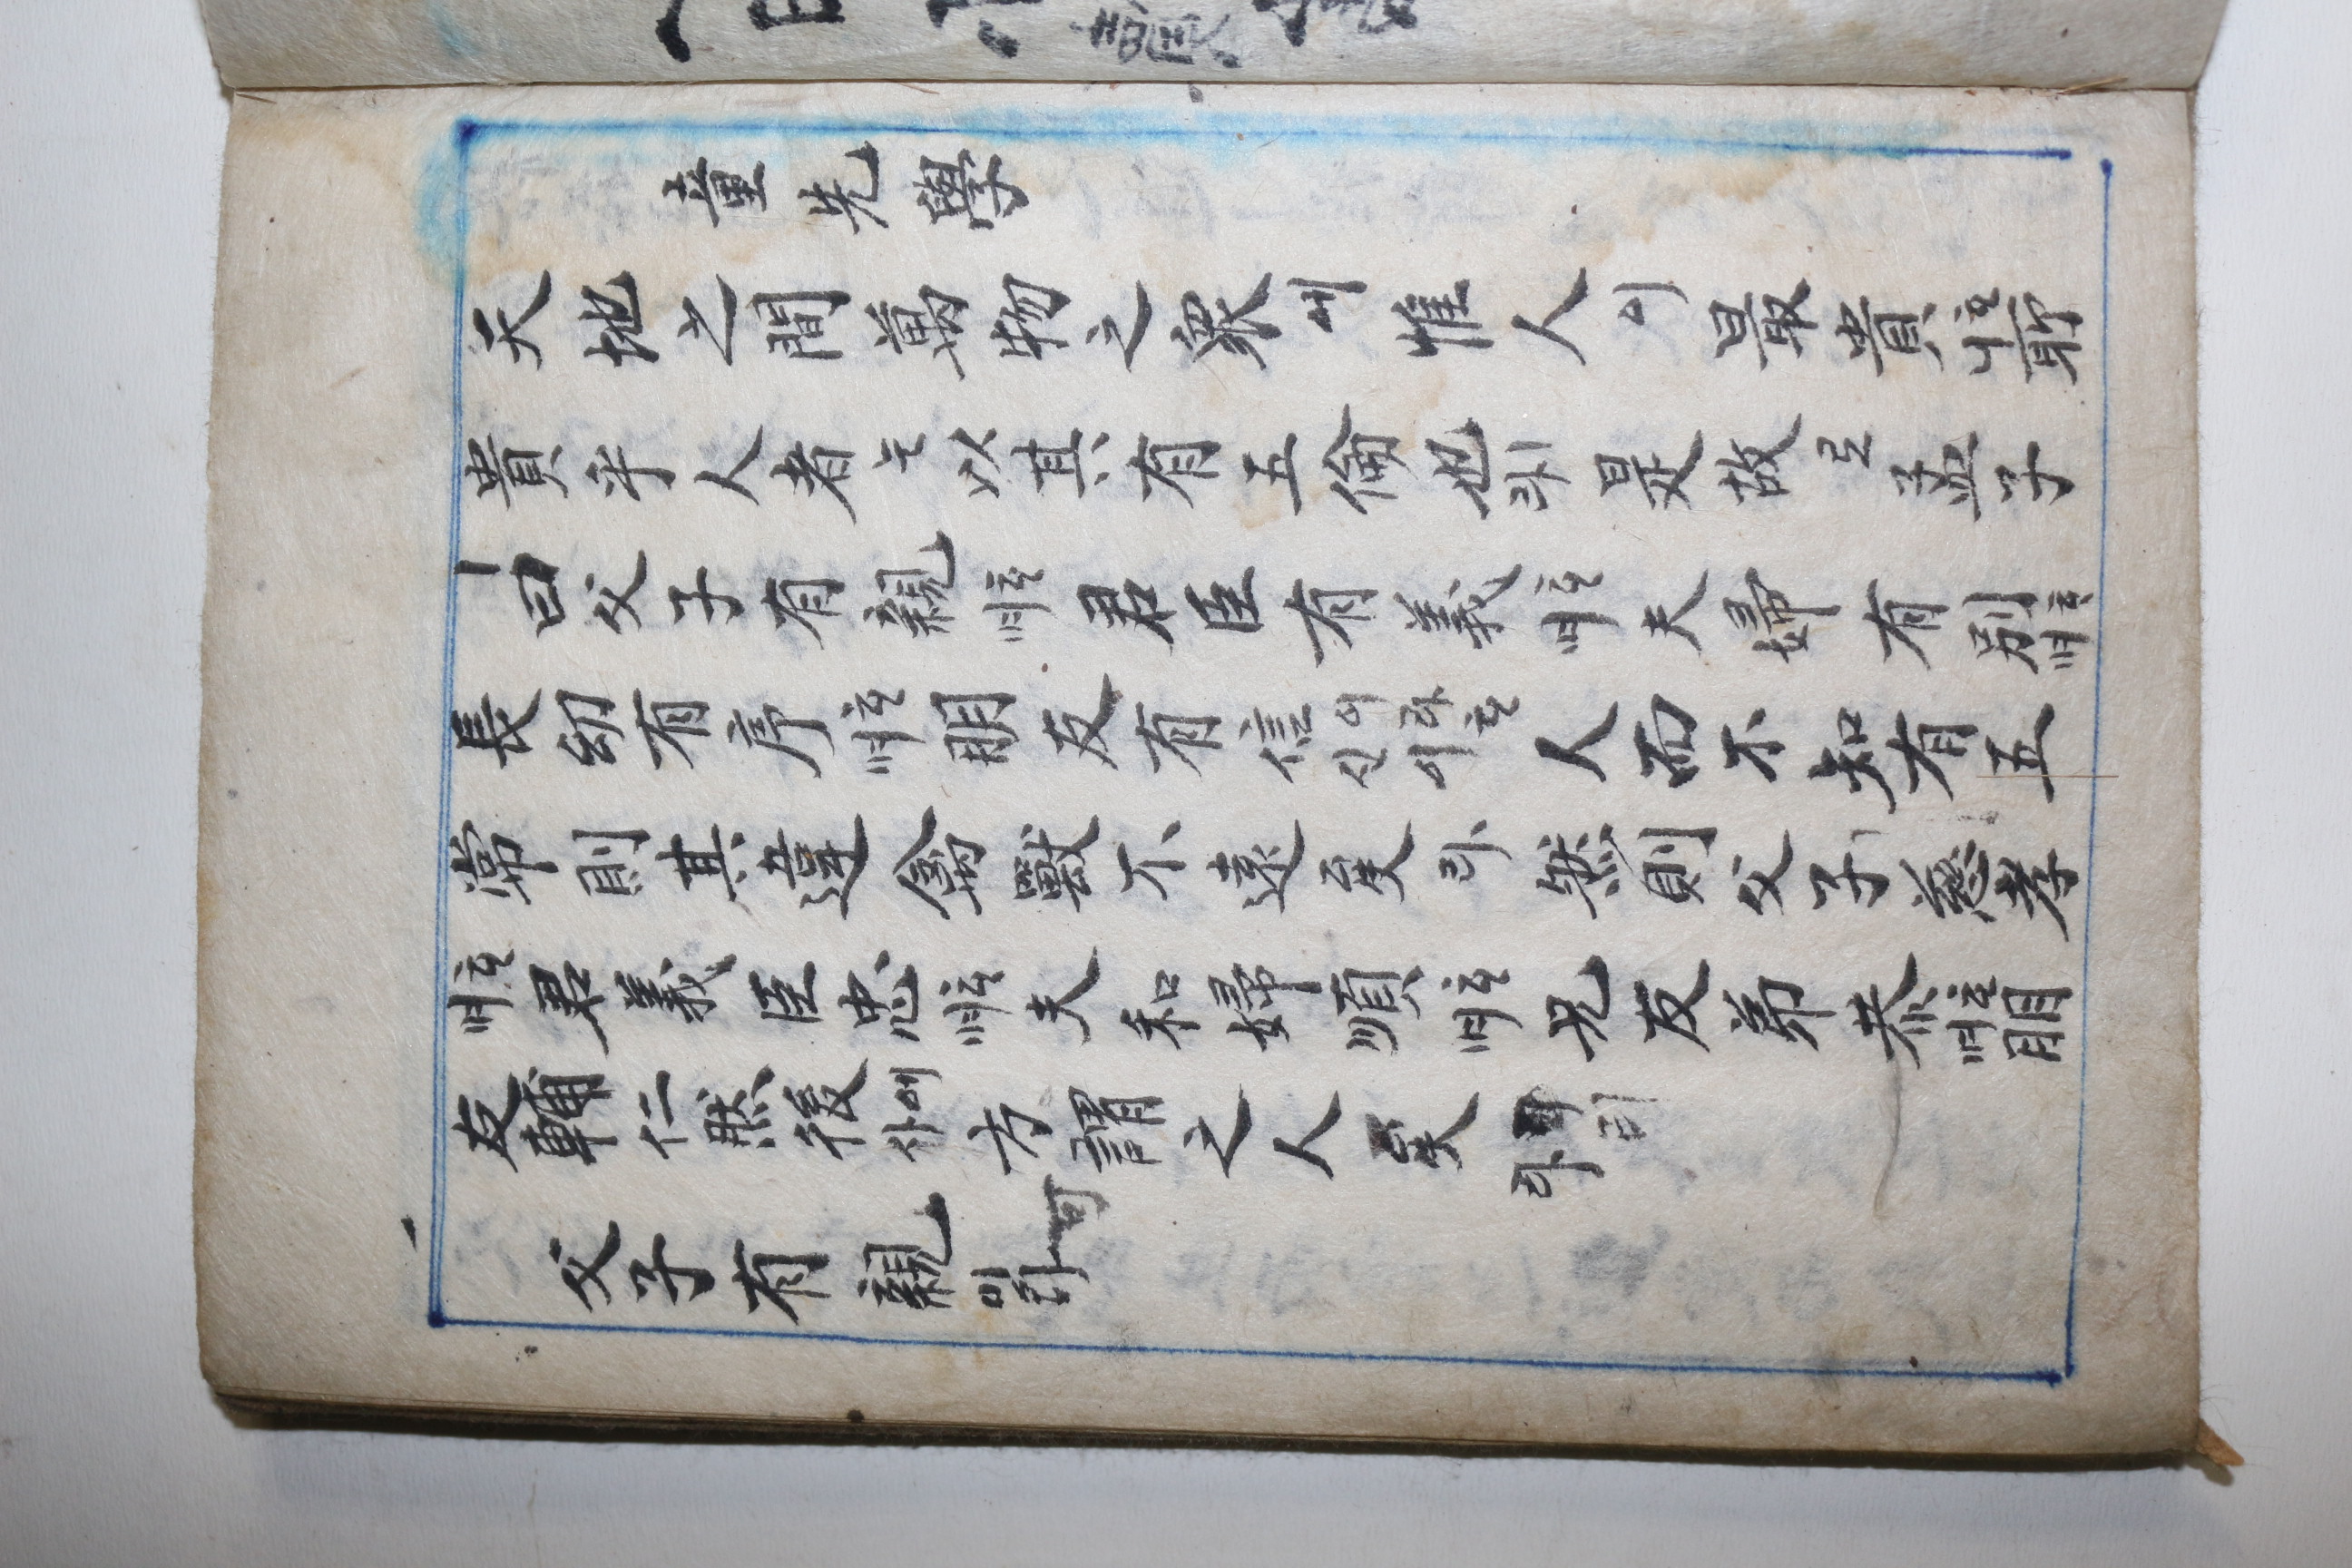 童先學
天地之間萬物之衆에惟人이最貴호니所
貴乎人者는以其有五倫也라ㅣ是故로孟子
ㅣ曰父子有親호며君臣有義호며夫婦有別호며
長幼有序호며朋友有信이라호신이人而不知有五
常則其違禽獸不遠矣라然則父子慈孝
호며君義臣忠호며夫和婦順호며兄友弟恭호며朋
友輔仁然後에사方可謂之人矣리라
父子有親이라